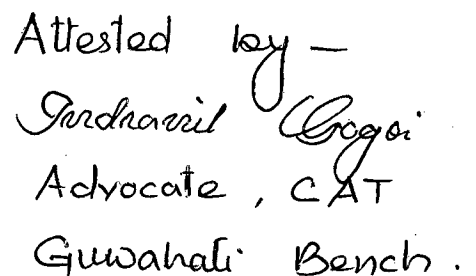 Attested by –
Indranil Gogoi
Advocate, CAT
Guwahati Bench.